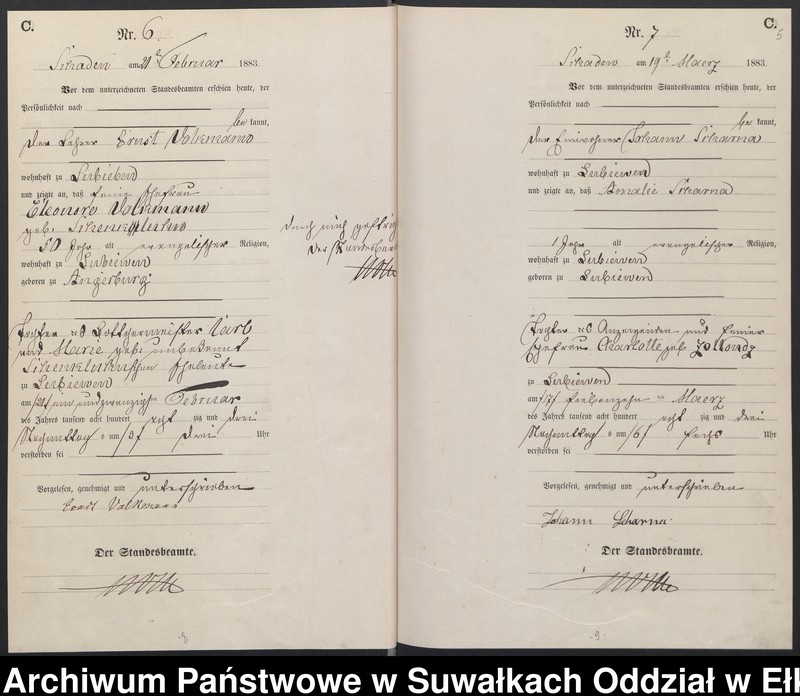 C.
Nr. 6
am 21 ten Februar 1883.
Vor dem unterzeichneten Standesbeamten erschien heute, der
Persönlichkeit nach
be kannt,
der Lehrer Ernst Volkmann
wohnhaft zu
und zeigte an, daß seine Ehefrau
Eleonore Volkmann
geb.
50 Jahr alt evangelischer Religion,
wohnhaft zu Lubiewen
geboren zu Angerburg
durch mich
Der Standesbeamte
Tochter des Böttchermeister Carl
und Marie geb. unbekannt
schen Eheleute
zu Lubiewen
am ein und zwanzigsten Februar
des Jahres tausend acht hundert acht zig und drei
Nachmittag s um /3/ drei Uhr
verstorben sei
Vorgelesen, genehmigt und unterschrieben
Ernst Volkmann
Der Standesbeamte.
-8-
C.
5
Nr. 7
am 19 ten Maerz 1883.
Vor dem unterzeichneten Standesbeamten erschien heute, der
Persönlichkeit nach
be kannt,
der Einwohner Johann
wohnhaft zu Lubiewen
und zeigte an, daß Amalie
1 Jahr alt evangelischer Religion,
wohnhaft zu Lubiewen
geboren zu Lubiewen
Tochter des Anzeigenden und seiner
Ehefrau Charlotte geb.
zu Lubiewen
am /17/ siebenzehn ten Maerz
des Jahres tausend acht hundert acht zig und drei
Nachmittag s um /6/ sechs Uhr
verstorben sei
Vorgelesen, genehmigt und unterschrieben
Johann Scharna
Der Standesbeamte.
-9-
Archiwum Państwowe w Suwałkach Oddział w Eł